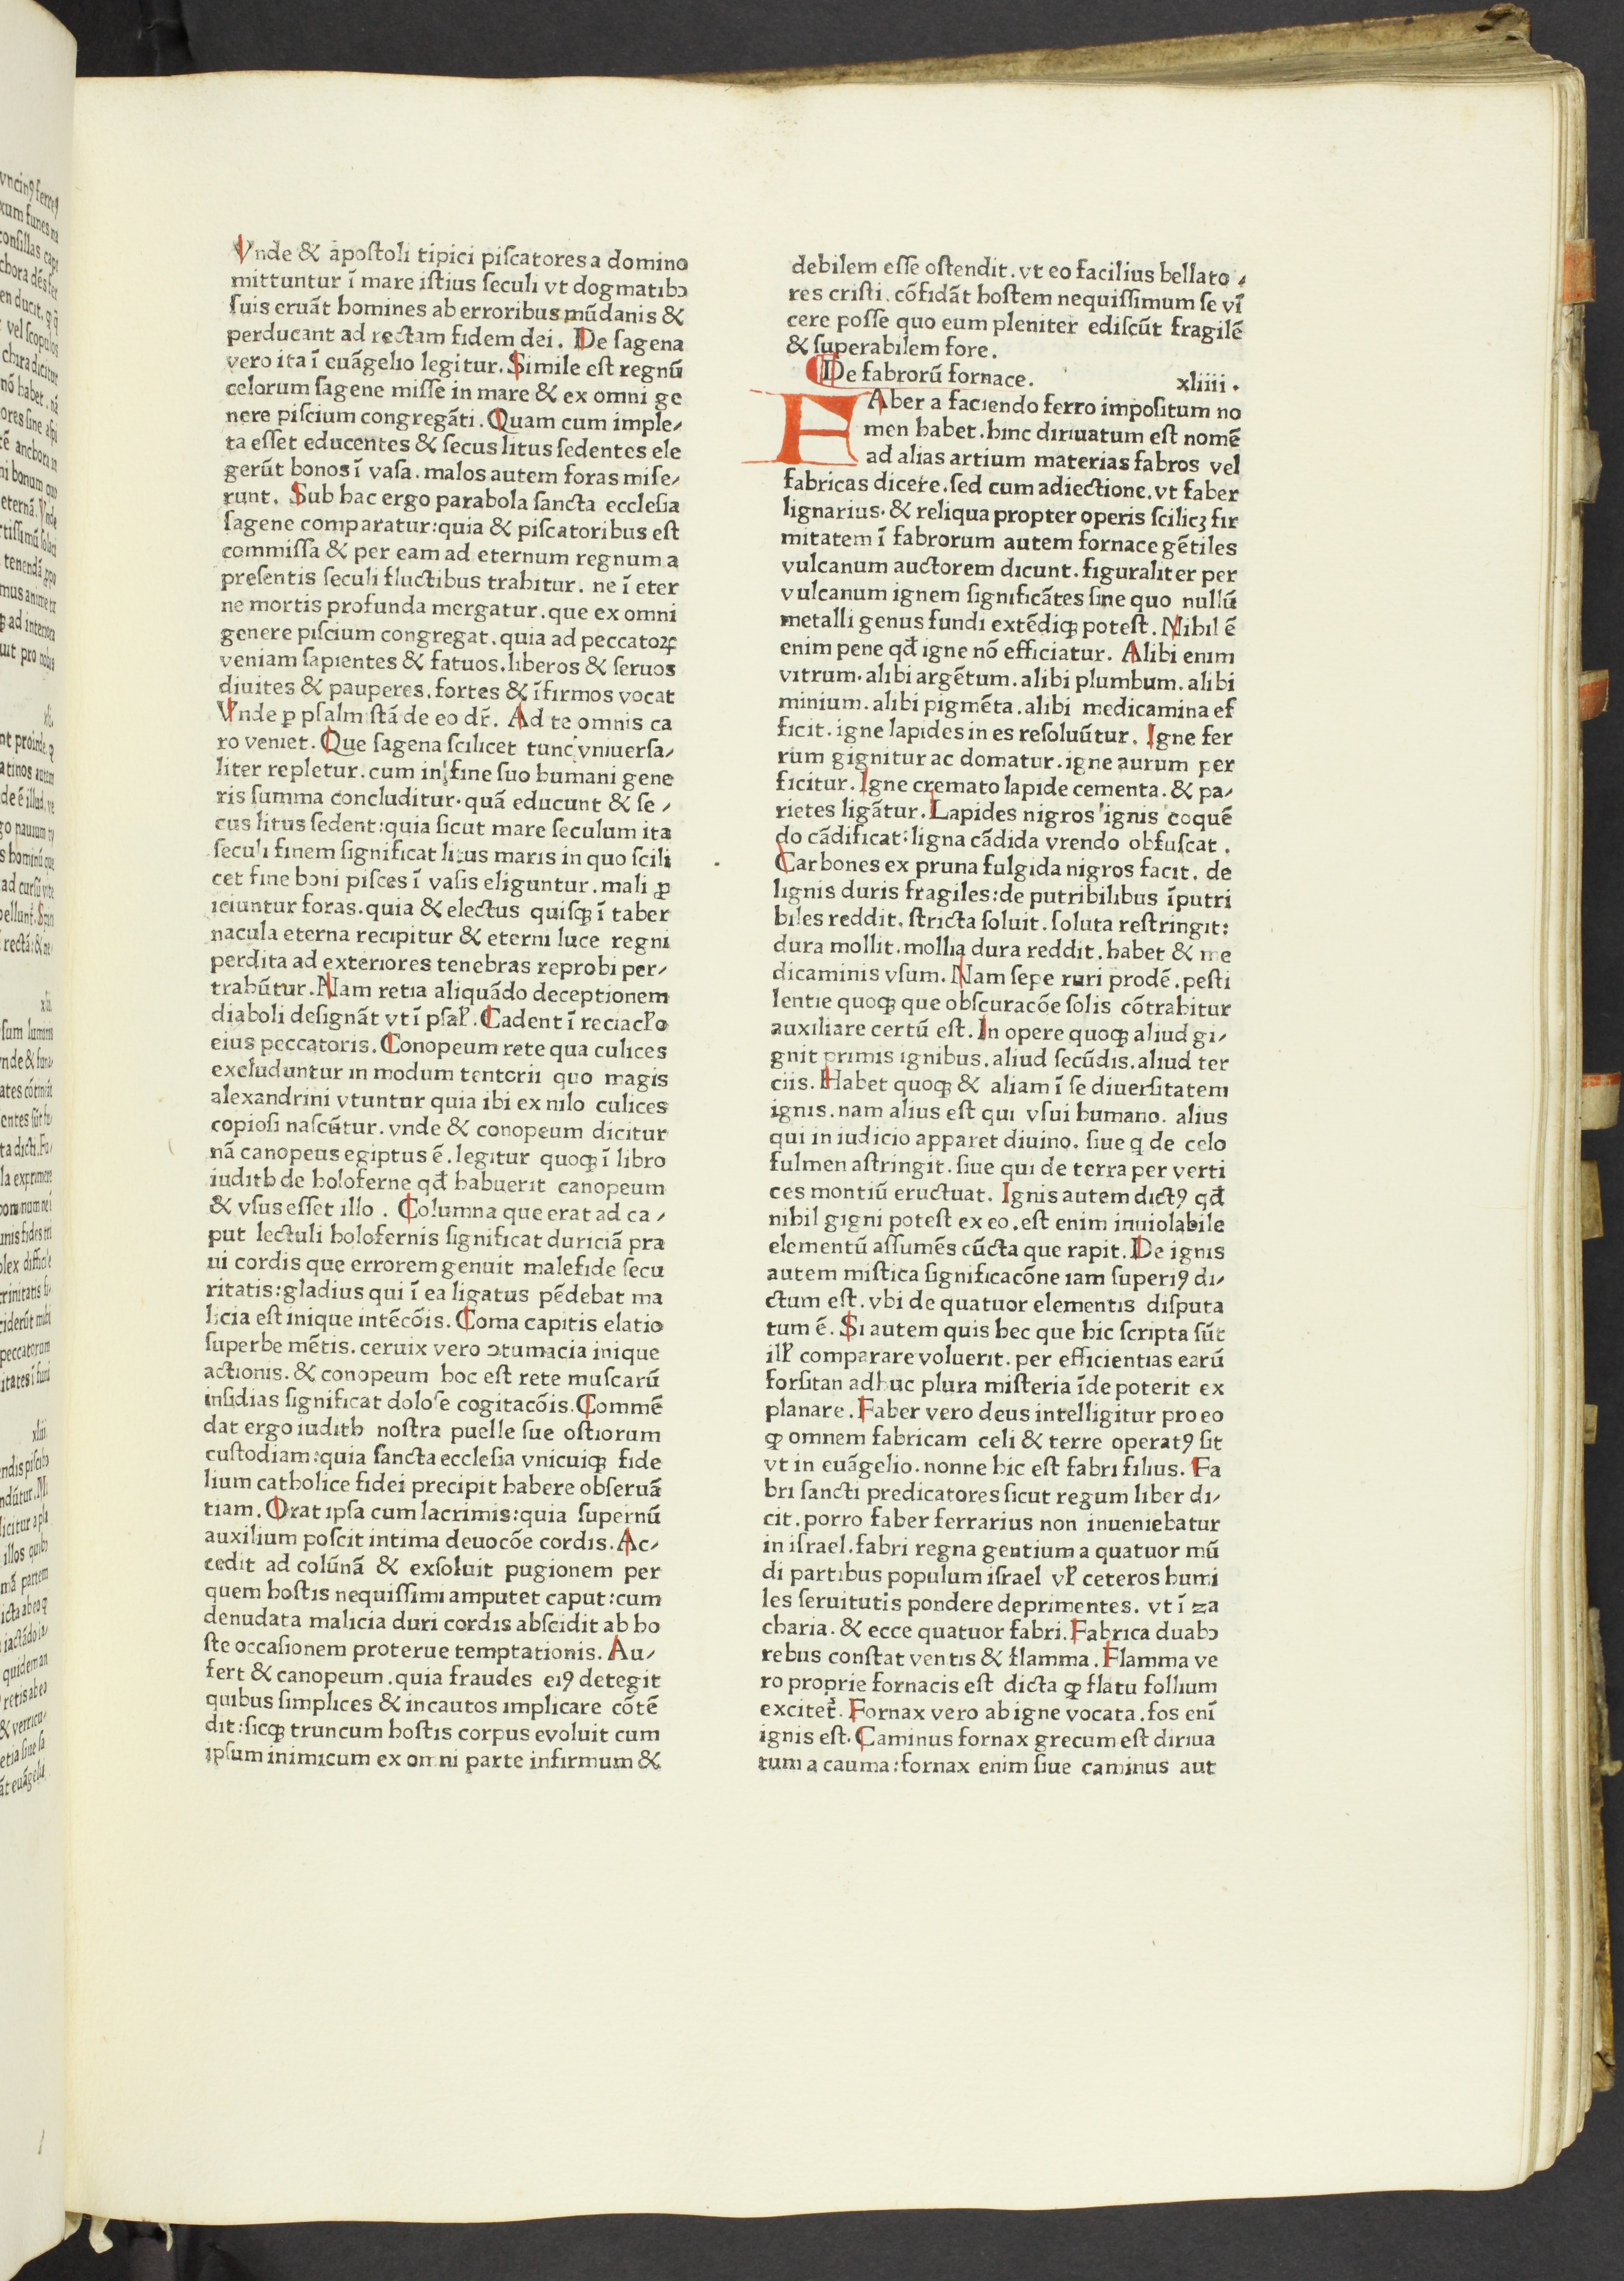 Vnde & apoſtoli tipici piſcatores a domino
mittuntur ī mare iſtius ſeculi vt dogmatibꝫ
ſuis eruāt homines ab erroribus mūdanis &
perducant ad rectam fidem dei. De ſagena
vero ita ī euāgelio legitur. Simile eſt regnū
celorum ſagene miſſe in mare & ex omni ge
nere piſcium congregāti. Quam cum imple⸗
ta eſſet educentes & ſecus litus ſedentes ele
gerūt bonos ī vaſa. malos autem foras miſe⸗
runt. Sub hac ergo parabola ſancta eccleſia
ſagene comparatur: quia & piſcatoribus eſt
commiſſa & per eam ad eternum regnum a
preſentis ſeculi fluctibus trahitur. ne ī eter
ne mortis profunda mergatur. que ex omni
genere piſcium congregat. quia ad peccatoꝝ
veniam ſapientes & fatuos. liberos & ſeruos
diuites & pauperes. fortes & īfirmos vocat
Vnde ꝑ pſalmiſtā de eo dr̄. Ad te omnis ca
ro veniet. Que ſagena ſcilicet tunc vniuerſa⸗
liter repletur. cum in fine ſuo humani gene
ris ſumma concluditur. quā educunt & ſe⸗
cus litus ſedent: quia ſicut mare ſeculum ita
ſeculi finem ſignificat litus maris in quo ſcili
cet fine boni piſces ī vaſis eliguntur. mali ꝓ
iciuntur foras. quia & electus quiſqꝫ ī taber
nacula eterna recipitur & eterni luce regni
perdita ad exteriores tenebras reprobi per⸗
trahūtur. Nam retia aliquādo deceptionem
diaboli deſignāt vt ī pſal̄. Cadent ī reciacl̄o
eius peccatoris. Conopeum rete qua culices
excluduntur in modum tentorii quo magis
alexandrini vtuntur quia ibi ex nilo culices
copioſi naſcūtur. vnde & conopeum dicitur
nā canopeus egiptus ē. legitur quoqꝫ ī libro
iudith de holoferne qđ habuerit canopeum
& vſus eſſet illo. Columna que erat ad ca⸗
put lectuli holofernis ſignificat duriciā pra
ui cordis que errorem genuit malefide ſecu
ritatis: gladius qui ī ea ligatus pēdebat ma
licia eſt inique intēcōis. Coma capitis elatio
ſuperbe mētis. ceruix vero ↄtumacia inique
actionis. & conopeum hoc eſt rete muſcarū
inſidias ſignificat doloſe cogitacōis. Commē
dat ergo iudith noſtra puelle ſue oſtiorum
cuſtodiam: quia ſancta eccleſia vnicuiqꝫ fide
lium catholice fidei precipit habere obſeruā
tiam. Orat ipſa cum lacrimis: quia ſupernū
auxilium poſcit intima deuocōe cordis. Ac⸗
cedit ad colūnā & exſoluit pugionem per
quem hoſtis nequiſſimi amputet caput: cum
denudata malicia duri cordis abſcidit ab ho
ſte occaſionem proterue temptationis. Au⸗
fert & canopeum. quia fraudes eiꝰ detegit
quibus ſimplices & incautos implicare cōtē
dit: ſicqꝫ truncum hoſtis corpus evoluit cum
ipſum inimicum ex omni parte infirmum &
debilem eſſe oſtendit. vt eo facilius bellato⸗
res criſti. cōfidāt hoſtem nequiſſimum ſe vī
cere poſſe quo eum pleniter ediſcūt fragilē
& ſuperabilem fore.
De fabrorū fornace. xliiii.
FAber a faciendo ferro impoſitum no
men habet. hinc diriuatum eſt nomē
ad alias artium materias fabros vel
fabricas dicere. ſed cum adiectione. vt faber
lignarius. & reliqua propter operis ſcilicꝫ fir
mitatem ī fabrorum autem fornace gētiles
vulcanum auctorem dicunt. figuraliter per
vulcanum ignem ſignificātes ſine quo nullū
metalli genus fundi extēdiqꝫ poteſt. Nihil ē
enim pene qđ igne nō efficiatur. Alibi enim
vitrum. alibi argētum. alibi plumbum. alibi
minium. alibi pigmēta. alibi medicamina ef
ficit. igne lapides in es reſoluūtur. Igne fer
rum gignitur ac domatur. igne aurum per
ficitur. Igne cremato lapide cementa. & pa⸗
rietes ligātur. Lapides nigros ignis coquē
do cādificat: ligna cādida vrendo obfuſcat.
Carbones ex pruna fulgida nigros facit. de
lignis duris fragiles: de putribilibus īputri
biles reddit. ſtricta ſoluit. ſoluta reſtringit:
dura mollit. mollia dura reddit. habet & me
dicaminis vſum. Nam ſepe ruri prodē. peſti
lentie quoqꝫ que obſcuracōe ſolis cōtrahitur
auxiliare certū eſt. In opere quoqꝫ aliud gi⸗
gnit primis ignibus. aliud ſecūdis. aliud ter
ciis. Habet quoqꝫ & aliam ī ſe diuerſitatem
ignis. nam alius eſt qui vſui humano. alius
qui in iudicio apparet diuino. ſiue q de celo
fulmen aſtringit. ſiue qui de terra per verti
ces montiū eructuat. Ignis autem dictꝰ qđ
nihil gigni poteſt ex eo. eſt enim inuiolabile
elementū aſſumēs cūcta que rapit. De ignis
autem miſtica ſignificacōne iam ſuperiꝰ di⸗
ctum eſt. vbi de quatuor elementis diſputa
tum ē. Si autem quis hec que hic ſcripta ſūt
ill̄ comparare voluerit. per efficientias earū
forſitan adhuc plura miſteria īde poterit ex
planare. Faber vero deus intelligitur pro eo
ꝙ omnem fabricam celi & terre operatꝰ ſit
vt in euāgelio. nonne hic eſt fabri filius. Fa
bri ſancti predicatores ſicut regum liber di⸗
cit. porro faber ferrarius non inueniebatur
in iſrael. fabri regna gentium a quatuor mū
di partibus populum iſrael vl̄ ceteros humi
les ſeruitutis pondere deprimentes. vt ī za
charia. & ecce quatuor fabri. Fabrica duabꝫ
rebus conſtat ventis & flamma. Flamma ve
ro proprie fornacis eſt dicta ꝙ flatu follium
excitet᷑. Fornax vero ab igne vocata. fos enī
ignis eſt. Caminus fornax grecum eſt diriua
tum a cauma: fornax enim ſiue caminus aut